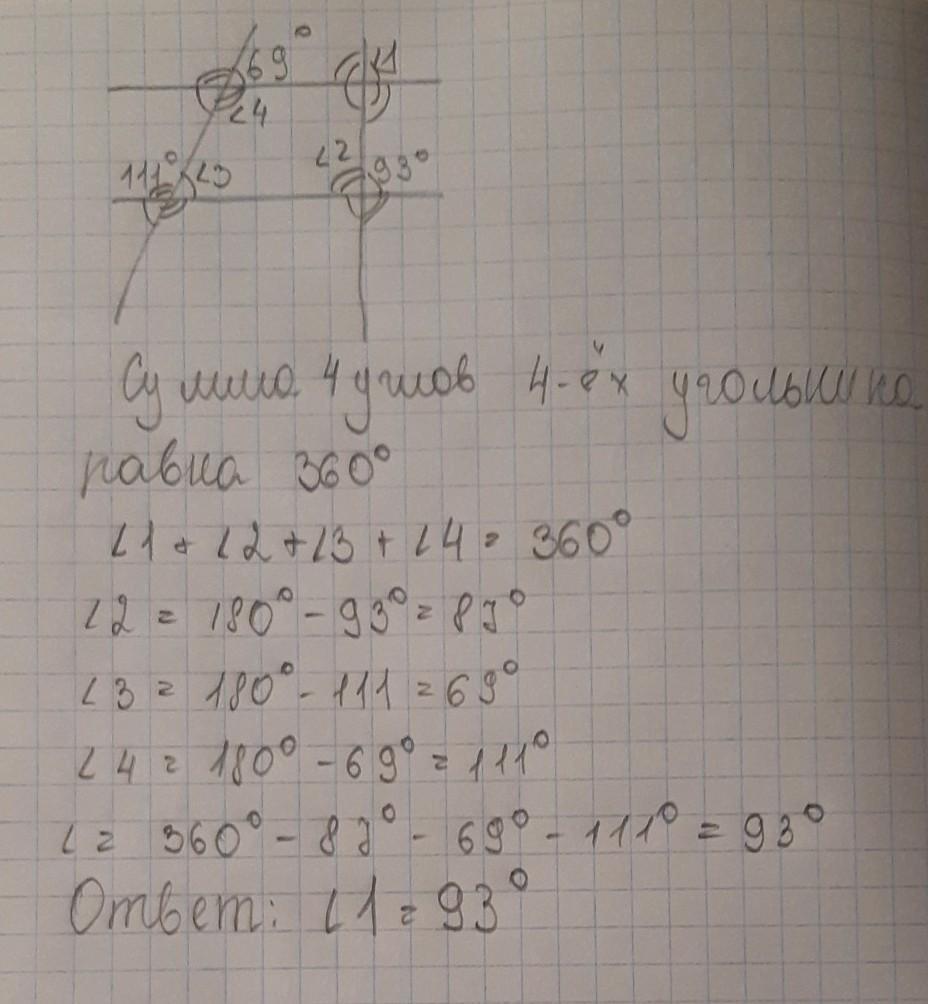 69°
∠1
∠4
111°
∠3
∠2
93°
Сумма 4 углов 4-ёх угольника
равна 360°
∠1 + ∠2 + ∠3 + ∠4 = 360°
∠2 = 180° - 93° = 87°
∠3 = 180° - 111 = 69°
∠4 = 180° - 69° = 111°
∠ = 360° - 87° - 69° - 111° = 93°
Ответ: ∠1 = 93°